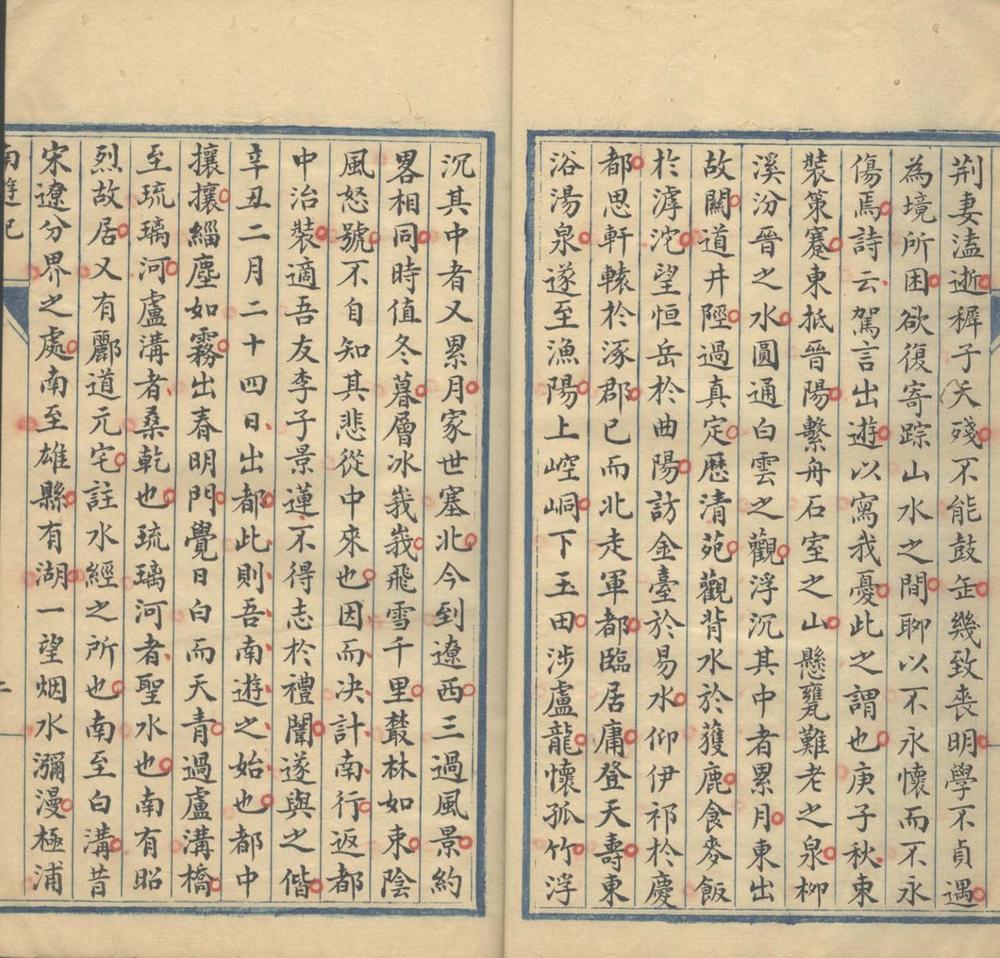 荆妻溘逝穉子夭殘不能鼓缶幾致喪明學不貞遇
為境所困欲復寄踪山水之間聊以不永懷而不永
傷焉詩云駕言出遊以寫我憂此之謂也庚子秋束
裝策蹇東抵晉陽繫舟石室之山懸甕難老之泉柳
溪汾晉之水圓通白雲之觀浮沉其中者累月東出
故關道井陘過真定歷清苑觀背水於獲鹿食麥飯
於滹沱望恒岳於曲陽訪金臺於易水仰伊祁於慶
都思軒轅於涿郡已而北走軍都臨居庸登天壽東
浴湯泉遂至漁陽上崆峒下玉田涉盧龍懷孤竹浮
沉其中者又累月家世塞北今到遼西三過風景約
畧相同時值冬暮層冰峩峩飛雪千里叢林如束陰
風怒號不自知其悲從中來也因而决計南行返都
中治裝適吾友李子景蓮不得志於禮闈遂與之偕
辛丑二月二十四日出都此則吾南遊之始也都中
攘攘緇塵如霧出春明門覺日白而天青過盧溝橋
至琉璃河盧溝者桑乾也琉璃河者聖水也南有昭
烈故居又有酈道元宅註水經之所也南至白溝昔
宋遼分界之處南至雄縣有湖一望烟水瀰漫極浦
南遊記
二